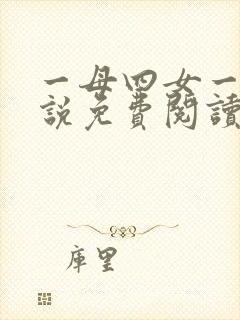 一母四女一
説免費閱讀
庫里